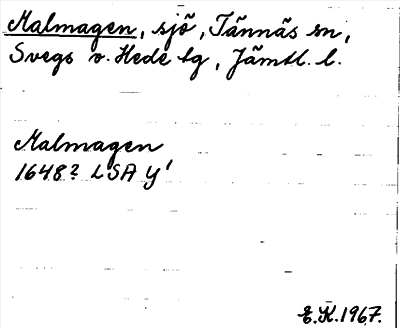 Malmagen, sjö, Tännäs sn,
Svegs o. Hede tg, Jämtl. l.
Malmagen
1648? LSA Y'
E.K. 1967.